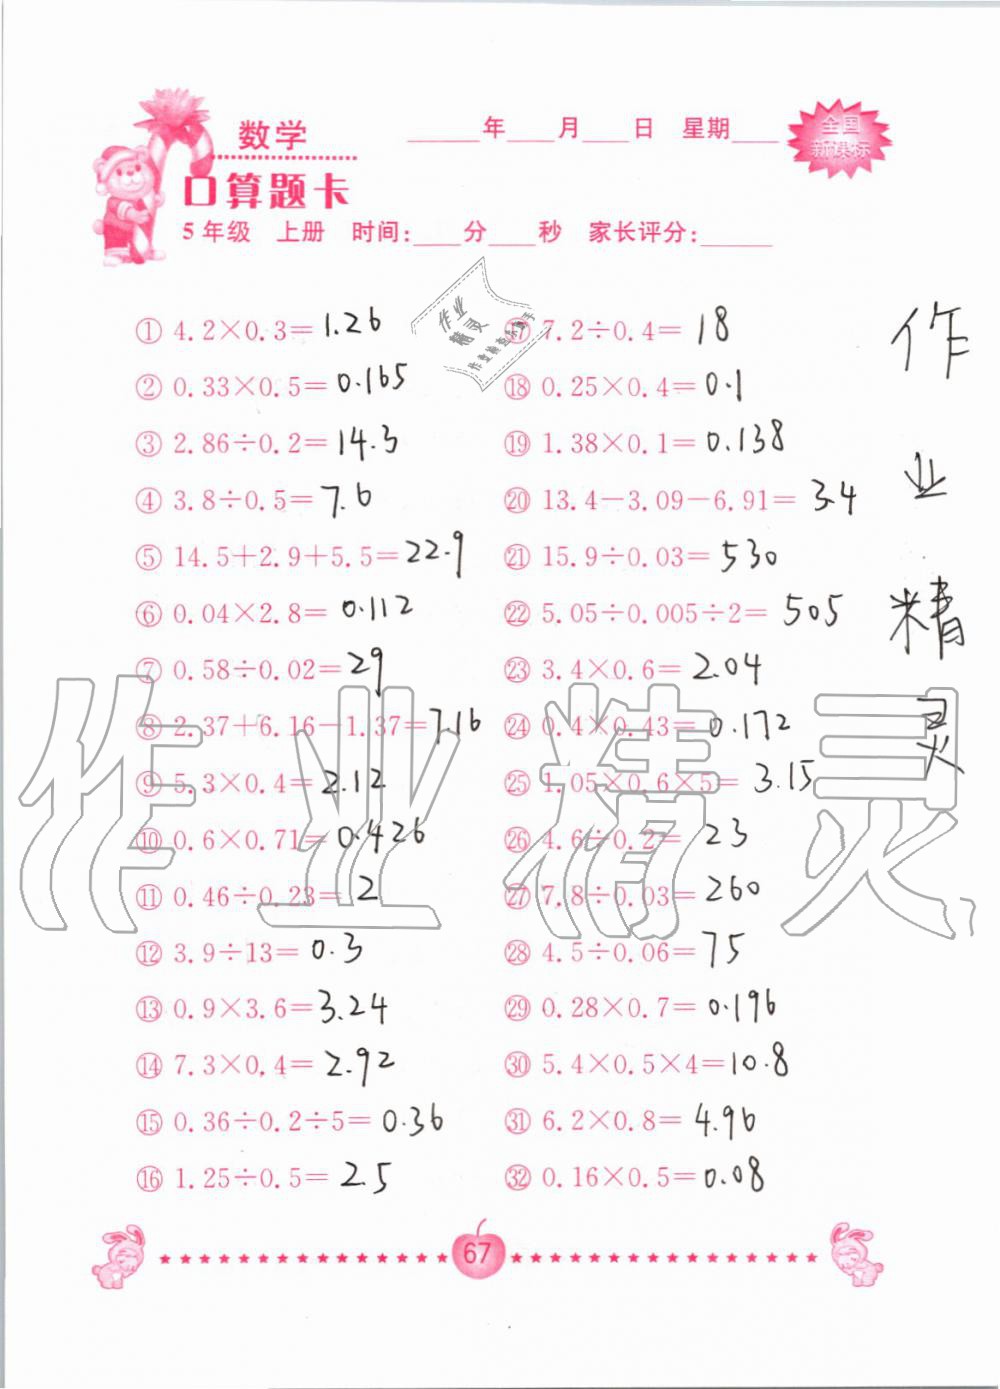 数学
____年____月____日 星期____
全国
新课标
口算题卡
5年级 上册 时间:____分____秒 家长评分:____
① 4.2×0.3=1.26
② 0.33×0.5=0.165
③ 2.86÷0.2=14.3
④ 3.8÷0.5=7.6
⑤ 14.5+2.9+5.5=22.9
⑥ 0.04×2.8=0.112
⑦ 0.58÷0.02=29
⑧ 2.37+6.16-1.37=7.16
⑨ 5.3×0.4=2.12
⑩ 0.6×0.71=0.426
⑪ 0.46÷0.23=2
⑫ 3.9÷13=0.3
⑬ 0.9×3.6=3.24
⑭ 7.3×0.4=2.92
⑮ 0.36÷0.2÷5=0.36
⑯ 1.25÷0.5=2.5
作业
精灵
⑰ 7.2÷0.4=18
⑱ 0.25×0.4=0.1
⑲ 1.38×0.1=0.138
⑳ 13.4-3.09-6.91=3.4
㉑ 15.9÷0.03=530
㉒ 5.05÷0.005÷2=505
㉓ 3.4×0.6=2.04
㉔ 0.4×0.43=0.172
㉕ 1.05×0.6×5=3.15
㉖ 4.6÷0.2=23
㉗ 7.8÷0.03=260
㉘ 4.5÷0.06=75
㉙ 0.28×0.7=0.196
㉚ 5.4×0.5×4=10.8
㉛ 6.2×0.8=4.96
㉜ 0.16×0.5=0.08
作
业
精
灵
作业精灵
67